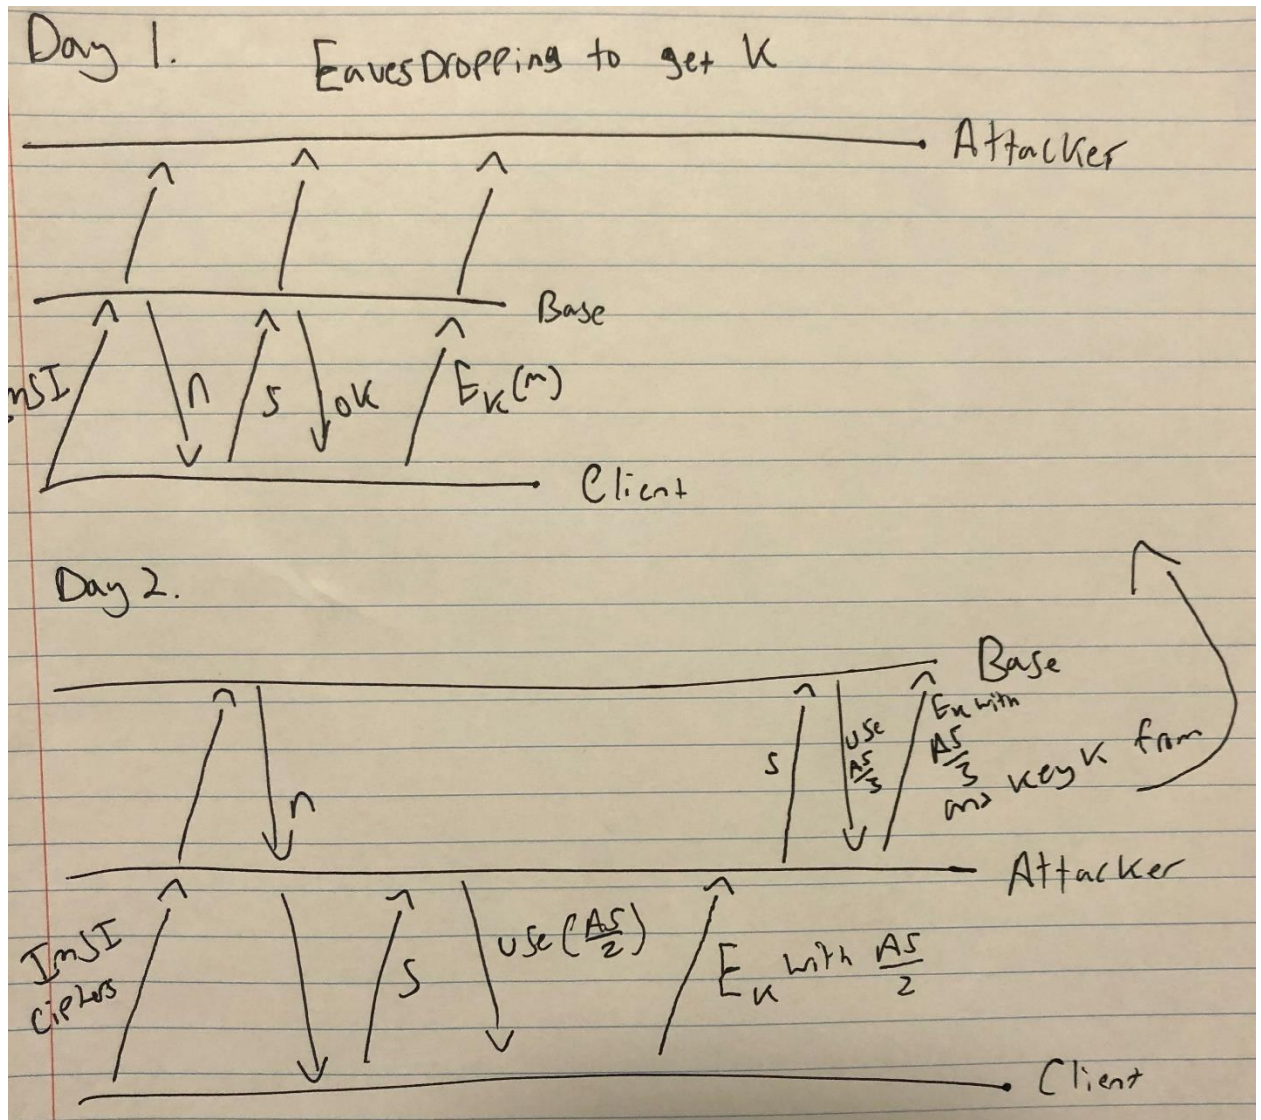 Day 1.
EavesDropping to get K
Attacker
Base
mSI
n
s
ok
E_K(m)
Client
Day 2.
Base
n
s
use
A5/3
E_K with
A5/3
and key K from
Attacker
ImSI
ciphers
s
use (A5/2)
E_K with A5/2
Client